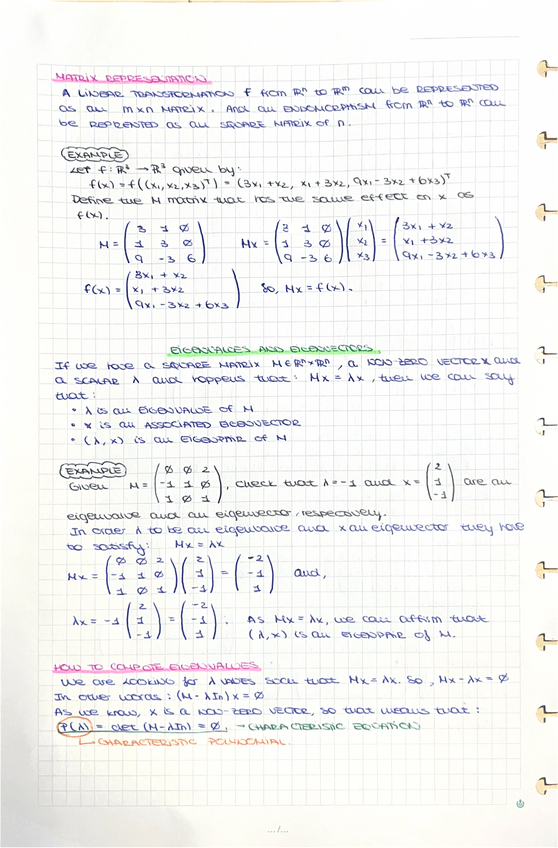 MATRIX REPRESENTATION
A LINEAR TRANSFORMATION f from ℝⁿ to ℝᵐ can be REPRESENTED
as an m×n MATRIX. And an ENDOMORPHISM from ℝⁿ to ℝⁿ can
be REPRENTED as an SQUARE MATRIX of n.
EXAMPLE
Let f: ℝ³ → ℝ³ given by:
f(x) = f((x₁, x₂, x₃)ᵀ) = (3x₁ + x₂, x₁ + 3x₂, 9x₁ - 3x₂ + 6x₃)ᵀ
Define the M matrix that has the same effect on x as
f(x).
M = (3 1 0 / 1 3 0 / 9 -3 6) Mx = (3 1 0 / 1 3 0 / 9 -3 6) (x₁ / x₂ / x₃) = (3x₁ + x₂ / x₁ + 3x₂ / 9x₁ - 3x₂ + 6x₃)
f(x) = (3x₁ + x₂ / x₁ + 3x₂ / 9x₁ - 3x₂ + 6x₃) So, Mx = f(x).
EIGENVALUES AND EIGENVECTORS
If we have a SQUARE MATRIX M∈ℝⁿ×ℝⁿ, a NON-ZERO VECTOR x and
a SCALAR λ and happens that: Mx = λx, then we can say
that:
• λ is an EIGENVALUE of M
• x is an ASSOCIATED EIGENVECTOR
• (λ, x) is an EIGENPAIR of M
EXAMPLE
Given M = (0 0 2 / -1 1 0 / 1 0 1), check that λ = -1 and x = (2 / 1 / -1) are an
eigenvalue and an eigenvector, respectively.
In order λ to be an eigenvalue and x an eigenvector they have
to satisfy: Mx = λx
Mx = (0 0 2 / -1 1 0 / 1 0 1) (2 / 1 / -1) = (-2 / -1 / 1) and,
λx = -1 (2 / 1 / -1) = (-2 / -1 / 1). As Mx = λx, we can affirm that
(λ, x) is an EIGENPAIR of M.
HOW TO COMPUTE EIGENVALUES
We are LOOKING for λ VALUES such that Mx = λx. So, Mx - λx = 0
In other words: (M - λIn)x = 0
As we know, x is a NON-ZERO VECTOR, so that means that:
P(λ) = det (M - λIn) = 0. → CHARACTERISTIC EQUATION
↳ CHARACTERISTIC POLYNOMIAL.
.../...